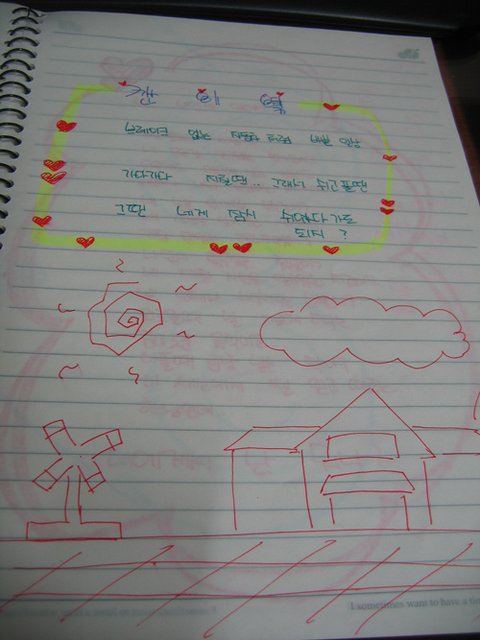 간 이 역
브레이크 없는 자동차 처럼
가다가다 지칠땐.. 그래서 쉬고플땐
그땐 네게 잠시 쉬었다 가도
되지 ?
I sometimes want to have a